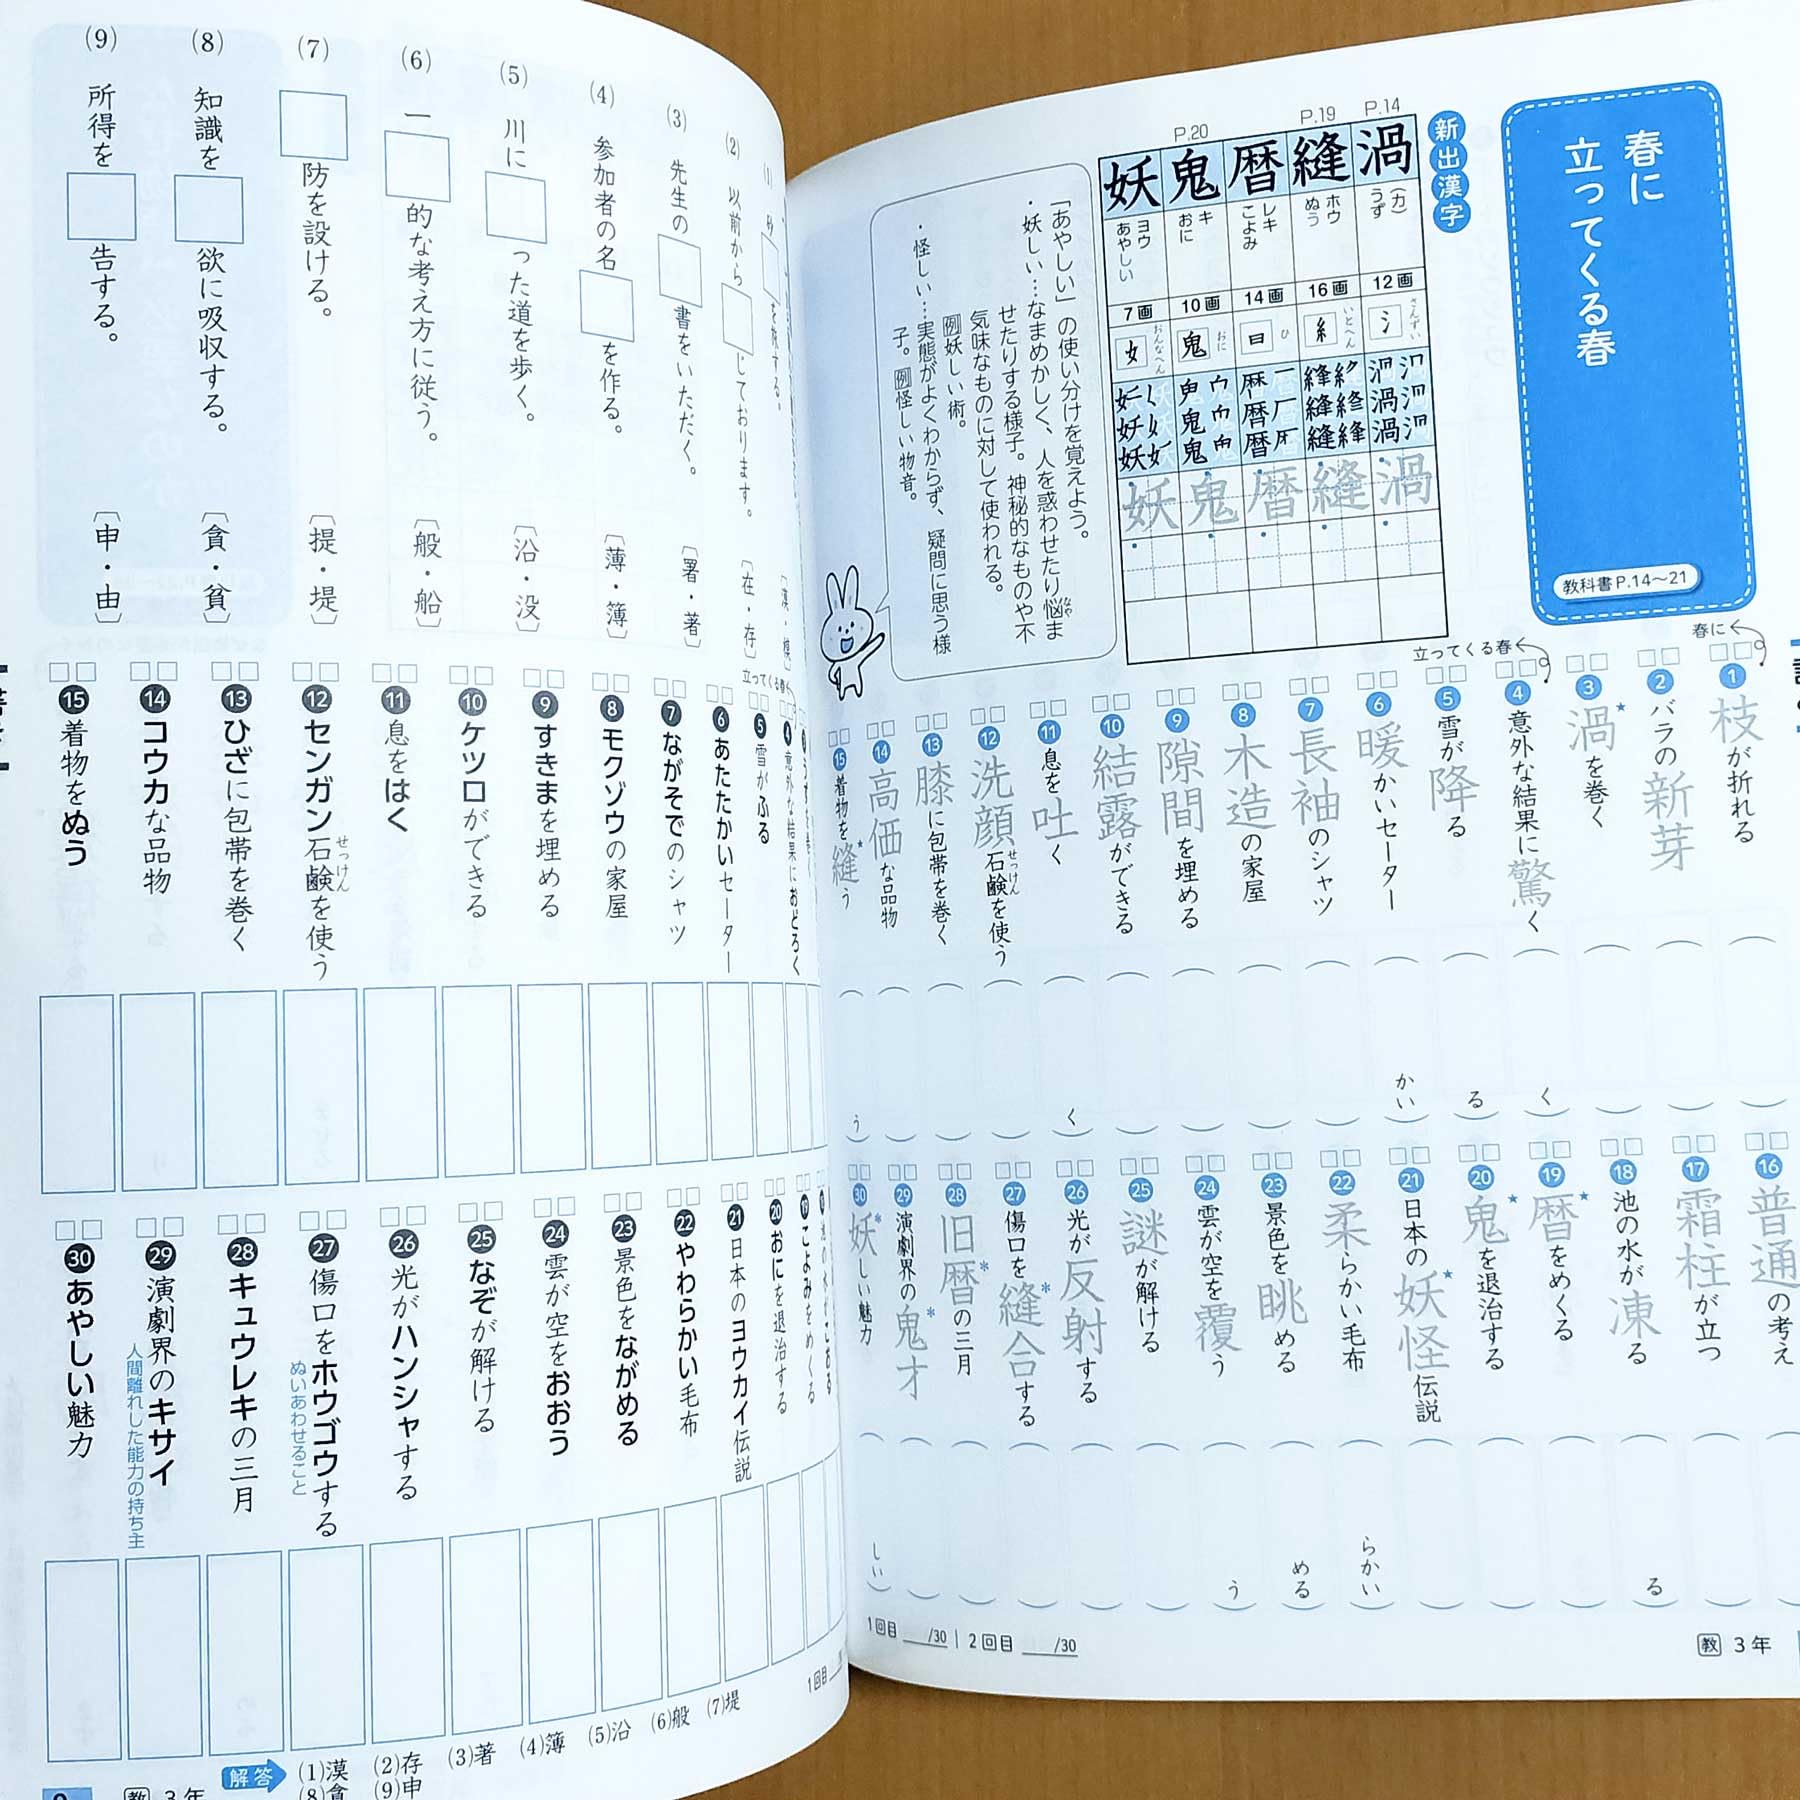 春に
立ってくる春
教科書P.14〜21
新出漢字
P.14
渦
(カ)
うず
12画
さんずい
氵
P.19
縫
ホウ
ぬう
16画
いとへん
糸
暦
レキ
こよみ
14画
ひ
日
P.20
鬼
キ
おに
10画
おに
鬼
妖
ヨウ
あやしい
7画
おんなへん
女
「あやしい」の使い分けを覚えよう。
・妖しい…なまめかしく、人を惑わせたり悩ま
なや
せたりする様子。神秘的なものや不
気味なものに対して使われる。
例妖しい術。
・怪しい…実態がよくわからず、疑問に思う様
子。例怪しい物音。
春に
1 枝が折れる
2 バラの新芽
3 渦を巻く
立ってくる春
4 意外な結果に驚く
く
5 雪が降る
る
6 暖かいセーター
かい
7 長袖のシャツ
8 木造の家屋
9 隙間を埋める
10 結露ができる
11 息を吐く
く
12 洗顔石鹸を使う
せっけん
13 膝に包帯を巻く
14 高価な品物
15 着物を縫う
う
16 普通の考え
17 霜柱が立つ
18 池の水が凍る
る
19 暦をめくる
20 鬼を退治する
21 日本の妖怪伝説
22 柔らかい毛布
らかい
23 景色を眺める
める
24 雲が空を覆う
う
25 謎が解ける
26 光が反射する
27 傷口を縫合する
28 旧暦の三月
29 演劇界の鬼才
30 妖しい魅力
しい
1回目 /30 2回目 /30
教 3年
(2) 以前から□じております。〔在・存〕
(3) 先生の□書をいただく。〔署・著〕
(4) 参加者の名□を作る。〔薄・簿〕
(5) 川に□った道を歩く。〔沿・没〕
(6) 一□的な考え方に従う。〔般・船〕
(7) □防を設ける。〔提・堤〕
(8) 知識を□欲に吸収する。〔貪・貧〕
(9) 所得を□告する。〔申・由〕
立ってくる春
4 意外な結果におどろく
5 雪がふる
6 あたたかいセーター
7 ながそでのシャツ
8 モクゾウの家屋
9 すきまを埋める
10 ケツロができる
11 息をはく
12 センガン石鹸を使う
せっけん
13 ひざに包帯を巻く
14 コウカな品物
15 着物をぬう
19 こよみをめくる
20 おにを退治する
21 日本のヨウカイ伝説
22 やわらかい毛布
23 景色をながめる
24 雲が空をおおう
25 なぞが解ける
26 光がハンシャする
27 傷口をホウゴウする
ぬいあわせること
28 キュウレキの三月
29 演劇界のキサイ
人間離れした能力の持ち主
30 あやしい魅力
1回目
解答 (1)漠 (2)存 (3)著 (4)簿 (5)沿 (6)般 (7)堤
(8)貪 (9)申
教 3年